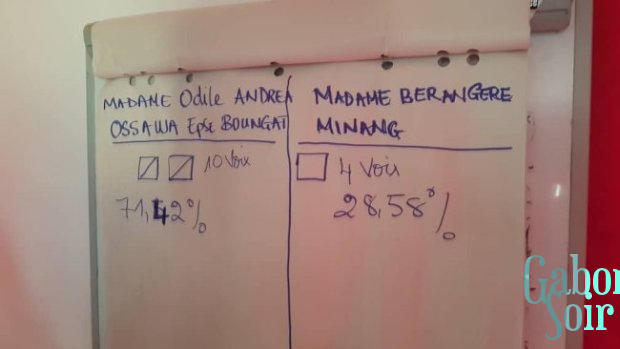 MADAME Odile ANDREA
OSSAWA Epse BOUNGAI
10 Voix
71,42%
MADAME BERANGERE
MINANG
4 Voix
28,58%
Gabon
Soir